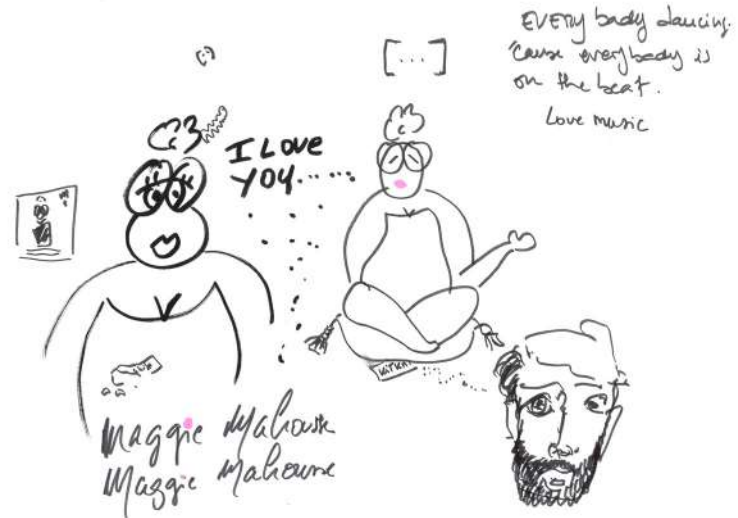 [...]
EVERY body dancing.
'cause everybody is
on the beat.
Love music
I LOVE
YOU......
KitKat
Maggie Mahouse
Maggie Mahousse